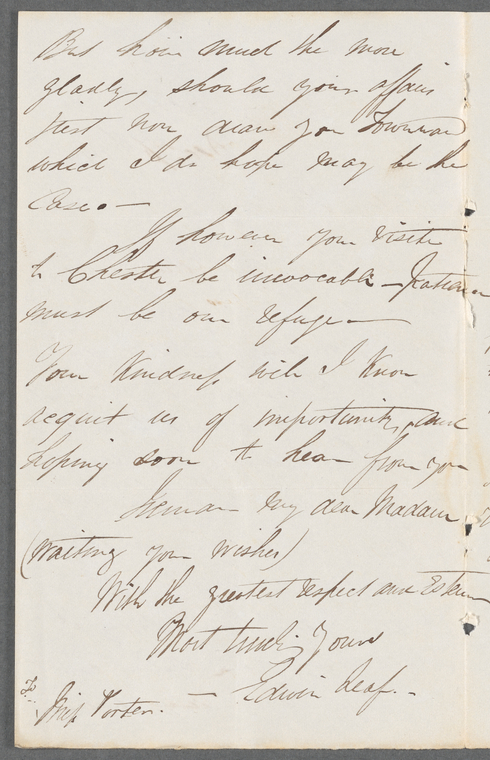 But how much the more
gladly, should your affairs
just now draw you Townward
which I do hope may be the
Case. —
If however your visit
to Chester be irrevocable — Patience
must be our refuge —
Your kindness will I know
acquit us of importunity, and
hoping soon to hear from you
I remain my dear Madam
(Waiting your wishes)
With the greatest respect and Esteem
Most truly yours
— Edwin Leaf. -
To
Miss Porter.